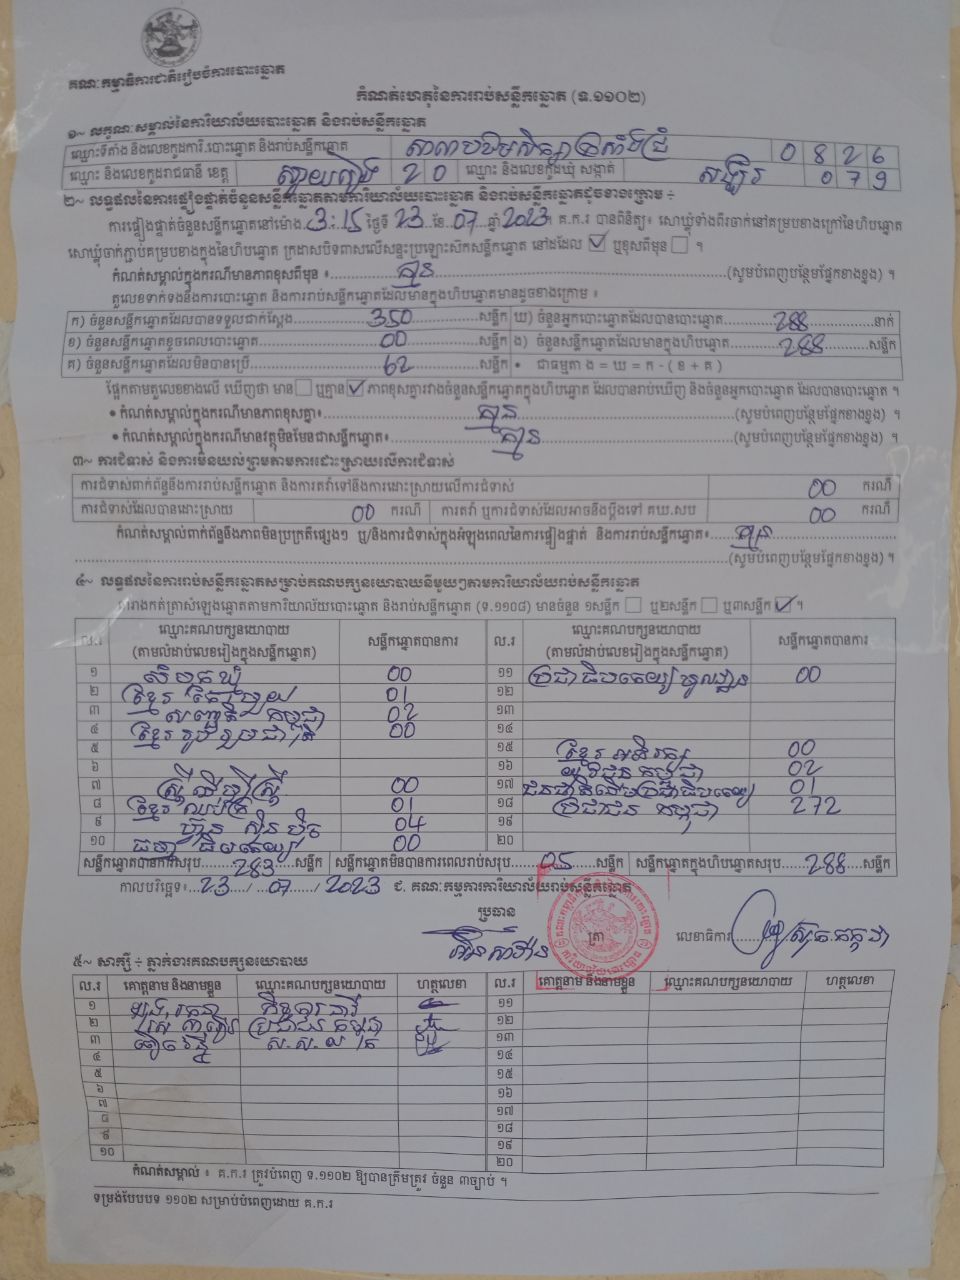 គណៈកម្មាធិការជាតិរៀបចំការបោះឆ្នោត
កំណត់ហេតុនៃការរាប់សន្លឹកឆ្នោត (ទ.១១០២)
១~ លក្ខណៈសម្គាល់នៃការិយាល័យបោះឆ្នោត និងរាប់សន្លឹកឆ្នោត
ឈ្មោះទីតាំង និងលេខកូដការិ.បោះឆ្នោត និងរាប់សន្លឹកឆ្នោត សាលាបឋមសិក្សា 0826
ឈ្មោះ និងលេខកូដរាជធានី ខេត្ត ស្វាយរៀង 20 ឈ្មោះ និងលេខកូដឃុំ សង្កាត់ 079
២~ លទ្ធផលនៃការផ្ទៀងផ្ទាត់ចំនួនសន្លឹកឆ្នោតតាមការិយាល័យបោះឆ្នោត និងរាប់សន្លឹកឆ្នោតដូចខាងក្រោម ÷
ការផ្ទៀងផ្ទាត់ចំនួនសន្លឹកឆ្នោតនៅម៉ោង 3:15 ថ្ងៃទី 23 ខែ 07 ឆ្នាំ 2023។ គ.ក.រ បានពិនិត្យ៖ សោឃ្លុំទាំងពីរចាក់នៅគម្របខាងក្រៅនៃហិបឆ្នោត
សោឃ្លុំចាក់ភ្ជាប់គម្របខាងក្នុងនៃហិបឆ្នោត ក្រដាសបិទពាសលើសន្ទះប្រឡោះសឹកសន្លឹកឆ្នោត នៅដដែល ☑ ឬខុសពីមុន ☐ ។
កំណត់សម្គាល់ក្នុងករណីមានភាពខុសពីមុន ៖ គ្មាន (សូមបំពេញបន្ថែមផ្នែកខាងខ្នង) ។
តួលេខទាក់ទងនឹងការបោះឆ្នោត និងការរាប់សន្លឹកឆ្នោតដែលមានក្នុងហិបឆ្នោតមានដូចខាងក្រោម ៖
ក) ចំនួនសន្លឹកឆ្នោតដែលបានទទួលជាក់ស្តែង 350 សន្លឹក ឃ) ចំនួនអ្នកបោះឆ្នោតដែលបានបោះឆ្នោត 288 នាក់
ខ) ចំនួនសន្លឹកឆ្នោតខូចពេលបោះឆ្នោត 00 សន្លឹក ង) ចំនួនសន្លឹកឆ្នោតដែលមានក្នុងហិបឆ្នោត 288 សន្លឹក
គ) ចំនួនសន្លឹកឆ្នោតដែលមិនបានប្រើ 62 សន្លឹក • ជាធម្មតា ង = ឃ = ក - ( ខ + គ )
ផ្អែកតាមតួលេខខាងលើ ឃើញថា មាន ☐ ឬគ្មាន ☑ ភាពខុសគ្នារវាងចំនួនសន្លឹកឆ្នោតក្នុងហិបឆ្នោត ដែលបានរាប់ឃើញ និងចំនួនអ្នកបោះឆ្នោត ដែលបានបោះឆ្នោត ។
• កំណត់សម្គាល់ក្នុងករណីមានភាពខុសគ្នា៖ គ្មាន (សូមបំពេញបន្ថែមផ្នែកខាងខ្នង) ។
• កំណត់សម្គាល់ក្នុងករណីមានវត្ថុមិនមែនជាសន្លឹកឆ្នោត៖ គ្មាន (សូមបំពេញបន្ថែមផ្នែកខាងខ្នង) ។
៣~ ការជំទាស់ និងការមិនយល់ព្រមតាមការដោះស្រាយលើការជំទាស់
ការជំទាស់ពាក់ព័ន្ធនឹងការរាប់សន្លឹកឆ្នោត និងការតវ៉ាទៅនឹងការដោះស្រាយលើការជំទាស់ 00 ករណី
ការជំទាស់ដែលបានដោះស្រាយ 00 ករណី ការតវ៉ា ឬការជំទាស់ដែលអាចនឹងប្តឹងទៅ គឃ.សប 00 ករណី
កំណត់សម្គាល់ពាក់ព័ន្ធនឹងភាពមិនប្រក្រតីផ្សេងៗ ឬ/និងការជំទាស់ក្នុងអំឡុងពេលនៃការផ្ទៀងផ្ទាត់ និងការរាប់សន្លឹកឆ្នោត៖ គ្មាន
(សូមបំពេញបន្ថែមផ្នែកខាងខ្នង) ។
៤~ លទ្ធផលនៃការរាប់សន្លឹកឆ្នោតសម្រាប់គណបក្សនយោបាយនីមួយៗតាមការិយាល័យរាប់សន្លឹកឆ្នោត
តារាងកត់ត្រាសំឡេងឆ្នោតតាមការិយាល័យបោះឆ្នោត និងរាប់សន្លឹកឆ្នោត (ទ.១១០៨) មានចំនួន ១សន្លឹក ☐ ឬ២សន្លឹក ☐ ឬ៣សន្លឹក ☑ ។
ល.រ ឈ្មោះគណបក្សនយោបាយ (តាមលំដាប់លេខរៀងក្នុងសន្លឹកឆ្នោត) សន្លឹកឆ្នោតបានការ ល.រ ឈ្មោះគណបក្សនយោបាយ (តាមលំដាប់លេខរៀងក្នុងសន្លឹកឆ្នោត) សន្លឹកឆ្នោតបានការ
១ 00 ១១ ប្រជាធិបតេយ្យមូលដ្ឋាន 00
២ ខ្មែរតែមួយ 01 ១២
៣ សញ្ជាតិកម្ពុជា 02 ១៣
៤ ខ្មែររួបរួមជាតិ 00 ១៤
៥ ១៥ ខ្មែរអភិរក្ស 00
៦ ១៦ យុវជនកម្ពុជា 02
៧ ស្ត្រីដើម្បីស្ត្រី 00 ១៧ ជនជាតិដើមប្រជាធិបតេយ្យ 01
៨ ខ្មែរឈប់ក្រ 01 ១៨ ប្រជាជនកម្ពុជា 272
៩ ហ្វ៊ុនស៊ិនប៉ិច 04 ១៩
១០ ធម្មាធិបតេយ្យ 00 ២០
សន្លឹកឆ្នោតបានការសរុប 283 សន្លឹក សន្លឹកឆ្នោតមិនបានការពេលរាប់សរុប 05 សន្លឹក សន្លឹកឆ្នោតក្នុងហិបឆ្នោតសរុប 288 សន្លឹក
កាលបរិច្ឆេទ៖ 23 / 07 / 2023 ជ. គណៈកម្មការការិយាល័យរាប់សន្លឹកឆ្នោត
ប្រធាន
ត្រា លេខាធិការ
៥~ សាក្សី ÷ ភ្នាក់ងារគណបក្សនយោបាយ
ល.រ គោត្តនាម និងនាមខ្លួន ឈ្មោះគណបក្សនយោបាយ ហត្ថលេខា ល.រ គោត្តនាម និងនាមខ្លួន ឈ្មោះគណបក្សនយោបាយ ហត្ថលេខា
១ ១១
២ ប្រជាជនកម្ពុជា ១២
៣ ១៣
៤ ១៤
៥ ១៥
៦ ១៦
៧ ១៧
៨ ១៨
៩ ១៩
១០ ២០
កំណត់សម្គាល់ ៖ គ.ក.រ ត្រូវបំពេញ ទ.១១០២ ឱ្យបានត្រឹមត្រូវ ចំនួន ៣ច្បាប់ ។
ទម្រង់បែបបទ ១១០២ សម្រាប់បំពេញដោយ គ.ក.រ